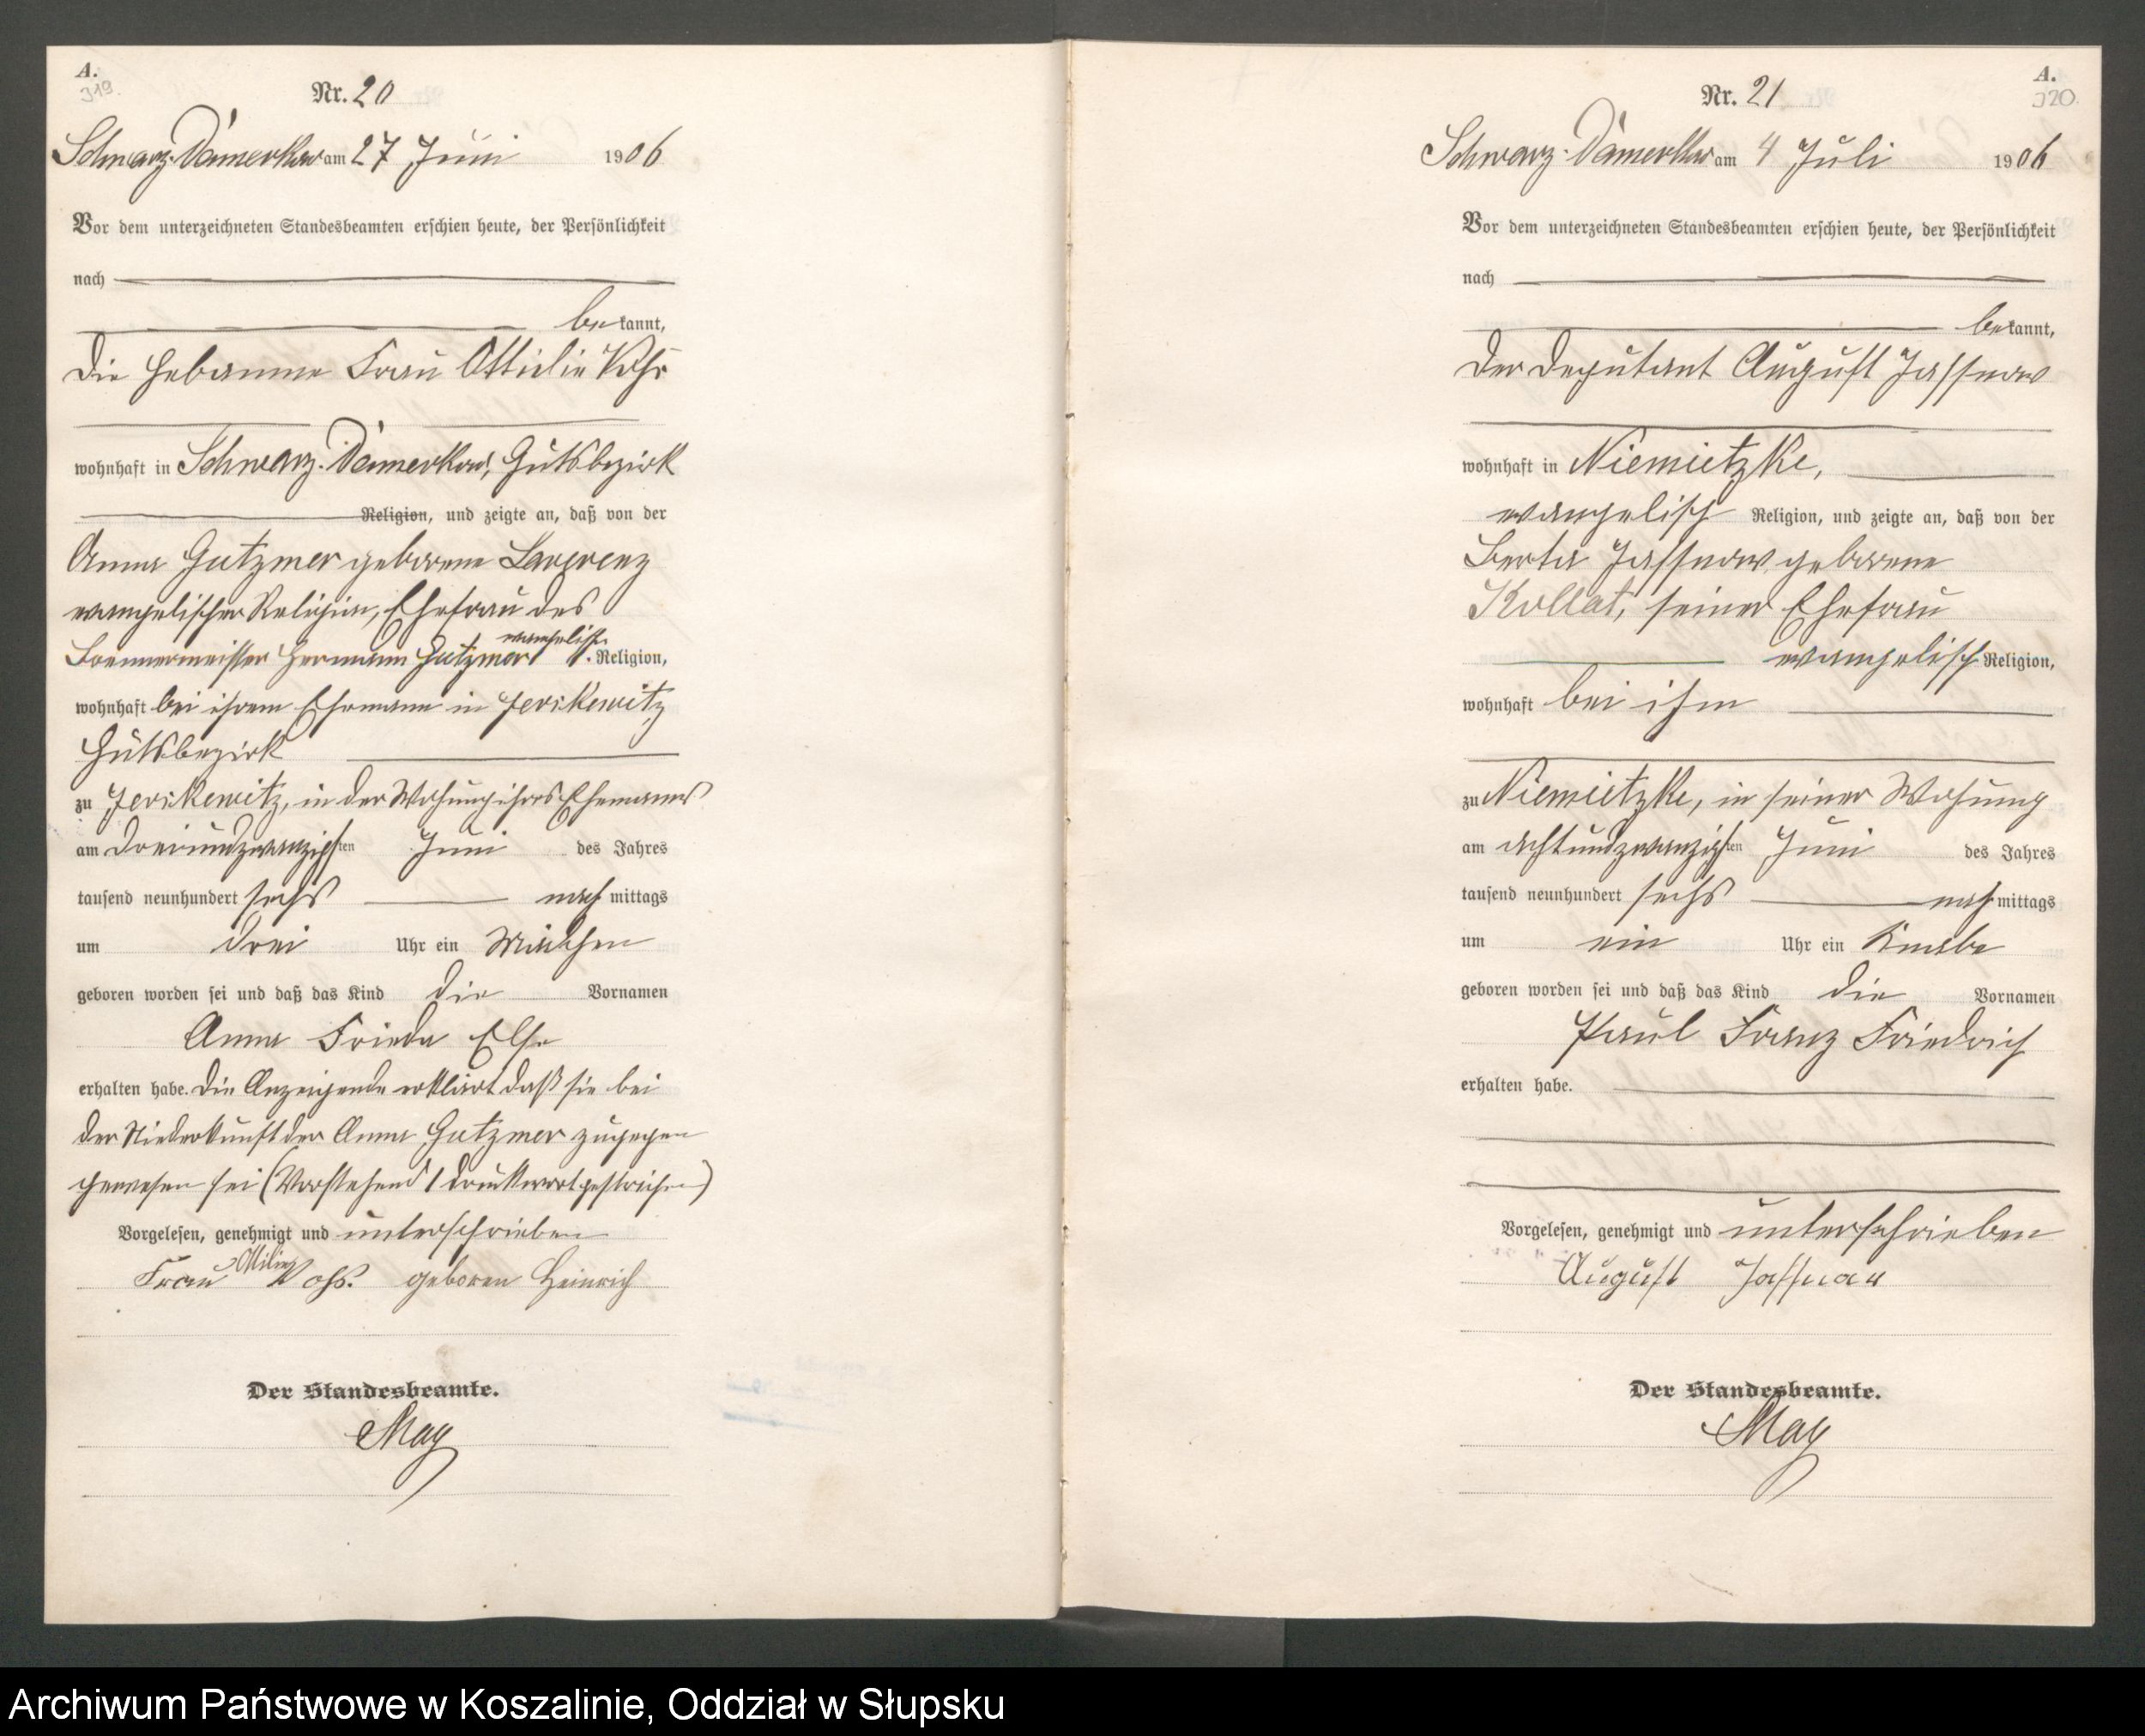 A.
319.
Nr. 20
Schwarz-Damerkow am 27 Juni 1906
Vor dem unterzeichneten Standesbeamten erschien heute, der Persönlichkeit
nach
bekannt,
die Hebamme Frau
wohnhaft in Schwarz-Damerkow, Gutsbezirk
Religion, und zeigte an, daß von der
Anna Gutzmer geborene
evangelischer Religion, Ehefrau des
Brennermeister Hermann Gutzmer evangelisch. Religion,
wohnhaft bei ihrem Ehemann in Jerskewitz
Gutsbezirk
zu Jerskewitz, in der Wohnung ihres Ehemanns
am dreiundzwanzigsten Juni des Jahres
tausend neunhundert sechs nachmittags
um drei Uhr ein Mädchen
geboren worden sei und daß das Kind die Vornamen
Anna Frieda Else
erhalten habe. Die Anzeigende erklärt daß sie bei
der Niederkunft der Anna Gutzmer zugegen
gewesen sei (Vorstehend 1 Druckwort gestrichen)
Vorgelesen, genehmigt und unterschrieben
Frau geboren Heinrich
Der Standesbeamte.
May
A.
320.
Nr. 21
Schwarz-Damerkow am 4 Juli 1906
Vor dem unterzeichneten Standesbeamten erschien heute, der Persönlichkeit
nach
bekannt,
der Deputant August Jassnow
wohnhaft in Niemietzke,
evangelisch Religion, und zeigte an, daß von der
Berta Jassnow geborene
Kollat, seiner Ehefrau
evangelisch Religion,
wohnhaft bei ihm
zu Niemietzke, in seiner Wohnung
am achtundzwanzigsten Juni des Jahres
tausend neunhundert sechs nachmittags
um ein Uhr ein Knabe
geboren worden sei und daß das Kind die Vornamen
Paul Franz Friedrich
erhalten habe.
Vorgelesen, genehmigt und unterschrieben
August Jassnow
Der Standesbeamte.
May
Archiwum Państwowe w Koszalinie, Oddział w Słupsku